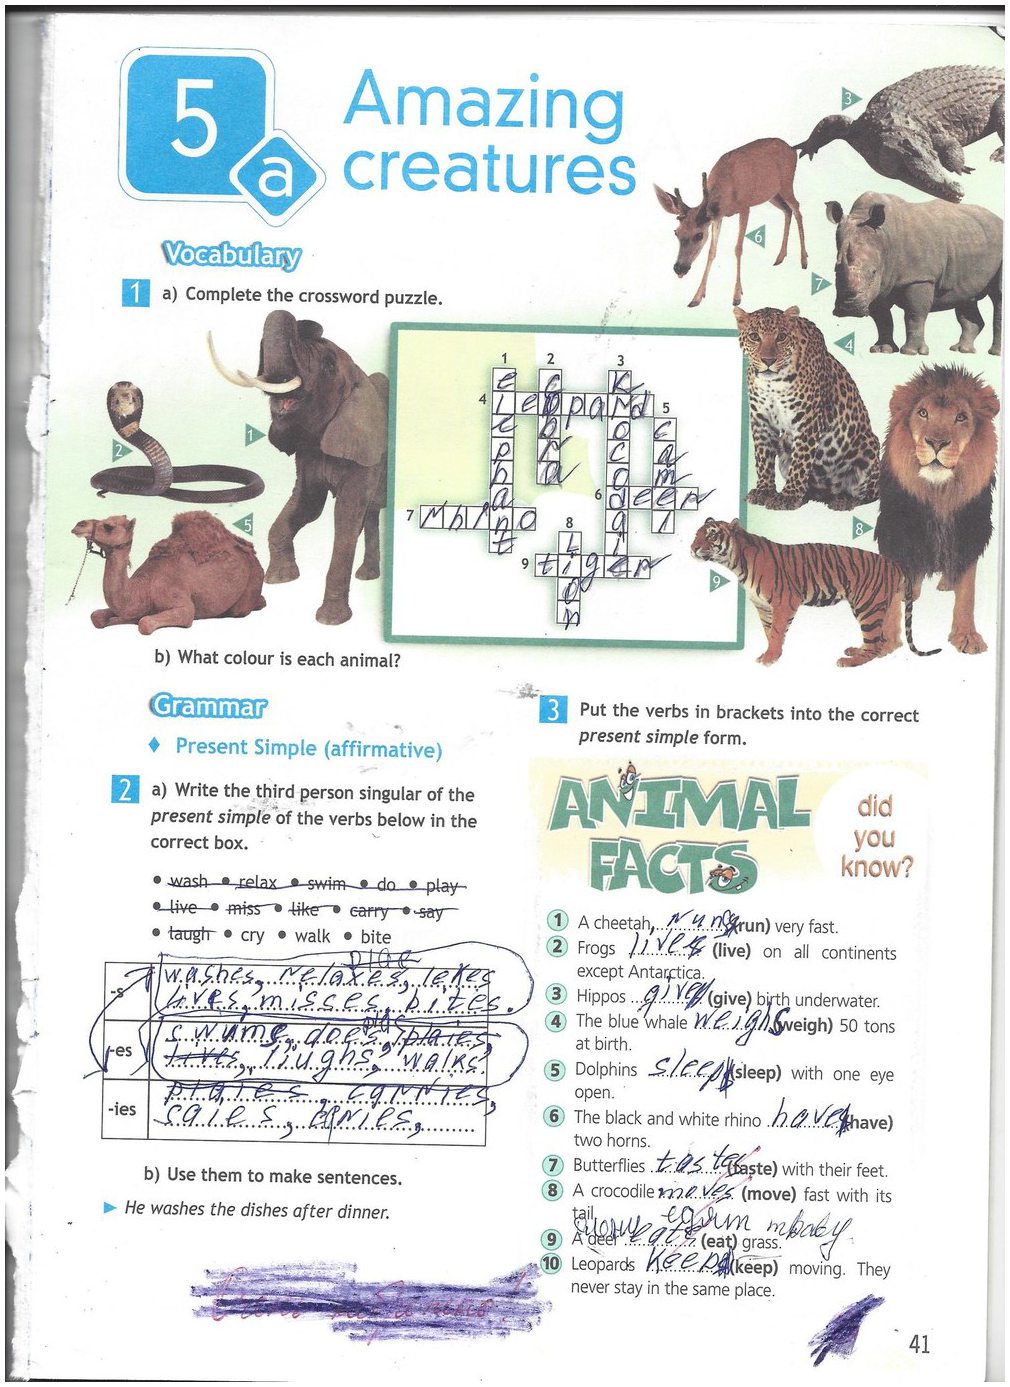 5
a
Amazing
creatures
Vocabulary
1 a) Complete the crossword puzzle.
3
6
7
4
1
2
5
8
9
1 2 3
4 leopard 5
elephant
cobra
camel
6 deer
7 rhino
8
lion
9 tiger
b) What colour is each animal?
Grammar
♦ Present Simple (affirmative)
2 a) Write the third person singular of the
present simple of the verbs below in the
correct box.
• wash • relax • swim • do • play
• live • miss • like • carry • say
• laugh • cry • walk • bite
-s washes, relaxes, lekes
lives, misses, bites.
-es swims, does, plaies,
lives, liughs, walks.
-ies plaies, carries,
saies, cries,
b) Use them to make sentences.
► He washes the dishes after dinner.
3 Put the verbs in brackets into the correct
present simple form.
ANIMAL
FACTS
did
you
know?
1 A cheetah, runs (run) very fast.
2 Frogs lives (live) on all continents
except Antarctica.
3 Hippos give (give) birth underwater.
4 The blue whale weighs (weigh) 50 tons
at birth.
5 Dolphins sleep (sleep) with one eye
open.
6 The black and white rhino haves (have)
two horns.
7 Butterflies taste (taste) with their feet.
8 A crocodile moves (move) fast with its
tail.
9 A deer eats (eat) grass.
10 Leopards keep (keep) moving. They
never stay in the same place.
41